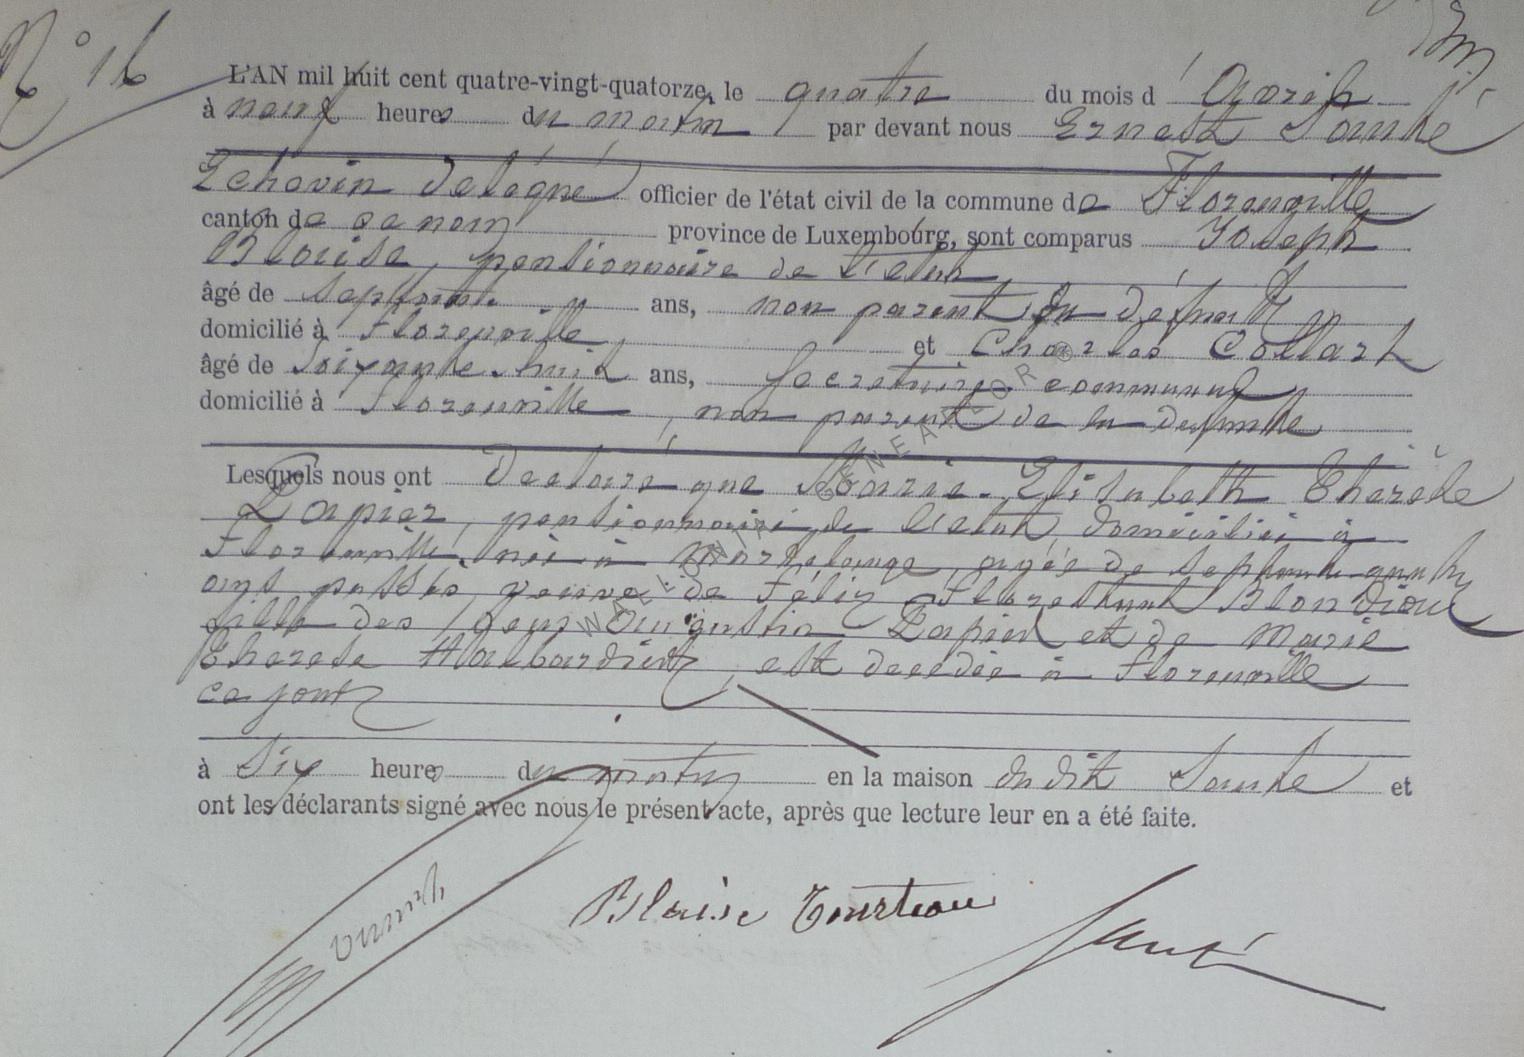 N° 16
L'AN mil huit cent quatre-vingt-quatorze, le quatre du mois d'Avril
à neuf heures du matin par devant nous Ernest Santé
Echevin délégué officier de l'état civil de la commune de Florenville
canton de ce nom province de Luxembourg, sont comparus Joseph
Blaise, pensionnaire de l'etat
âgé de ans, non parent du défunt
domicilié à Florenville et Charles Collart
âgé de soixante huit ans, Secretaire communal
domicilié à Florenville, non parent de la defunte
Lesquels nous ont declaré que Marie-Elisabeth Therèse
Lapier, pensionnaire de l'etat, domiciliée à
Florenville, née à Martelange, agée de septante quatre
ans passés, veuve de Félix Florestant Blondiau
fille des feux Augustin Lapier et de Marie
Therese Halbardier, est decedée à Florenville
ce jour
à six heures du matin en la maison du dit Santé et
ont les déclarants signé avec nous le présent acte, après que lecture leur en a été faite.
Blaise Santé
WALLONIA GENEALOR ©